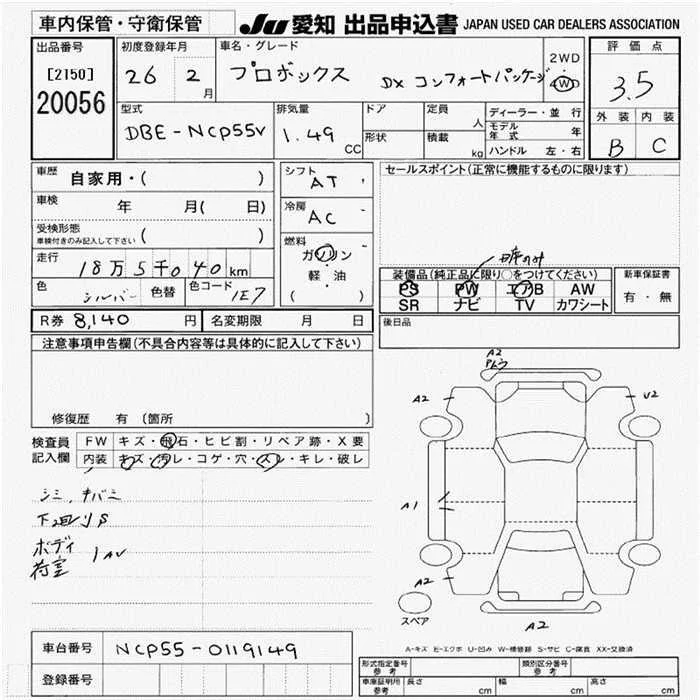 車内保管・守衛保管
JU 愛知 出品申込書 JAPAN USED CAR DEALERS ASSOCIATION
出品番号 初度登録年月 車名・グレード 評価点
[2150] 26 2月 プロボックス DX コンフォートパッケージ 2WD 4WD 3.5
20056
型式 排気量 ドア 定員 人 ディーラー・並行 外装 内装
DBE-NCP55V 1.49 CC 形状 積載 kg モデル年式 年 B C
ハンドル 左・右
車歴 自家用・( ) シフト AT セールスポイント(正常に機能するものに限ります)
車検 年 月( 日) 冷房 AC
受検形態 ( )
車検付きのみ記入して下さい
走行 18万5千040km 燃料 ガソリン
軽・油
( )
色 シルバー 色替 色コード 1E7
装備品(純正品に限り○をつけてください) 新車保証書
PS PW エアB AW 有・無
SR ナビ TV カワシート
R券 8,140円 名変期限 月 日 後日品
注意事項申告欄(不具合内容等は具体的に記入して下さい)
修復歴 有 (箇所 )
検査員 FW キズ・飛石・ヒビ割・リペア跡・X要
記入欄 内装 キズ・汚レ・コゲ・穴・スレ・キレ・破レ
シミ、キバミ
下回りS
ボディ
荷室 1AU
A2
A2
U2
A1
A2
A2
スペア
A-キズ E-エクボ U-凹み W-補修跡 S-サビ C-腐食 XX-交換済
車台番号 NCP55-0119149
登録番号
形式指定番号 参考 類別区分番号 参考
車庫証明用 参考 長さ cm 幅 cm 高さ cm